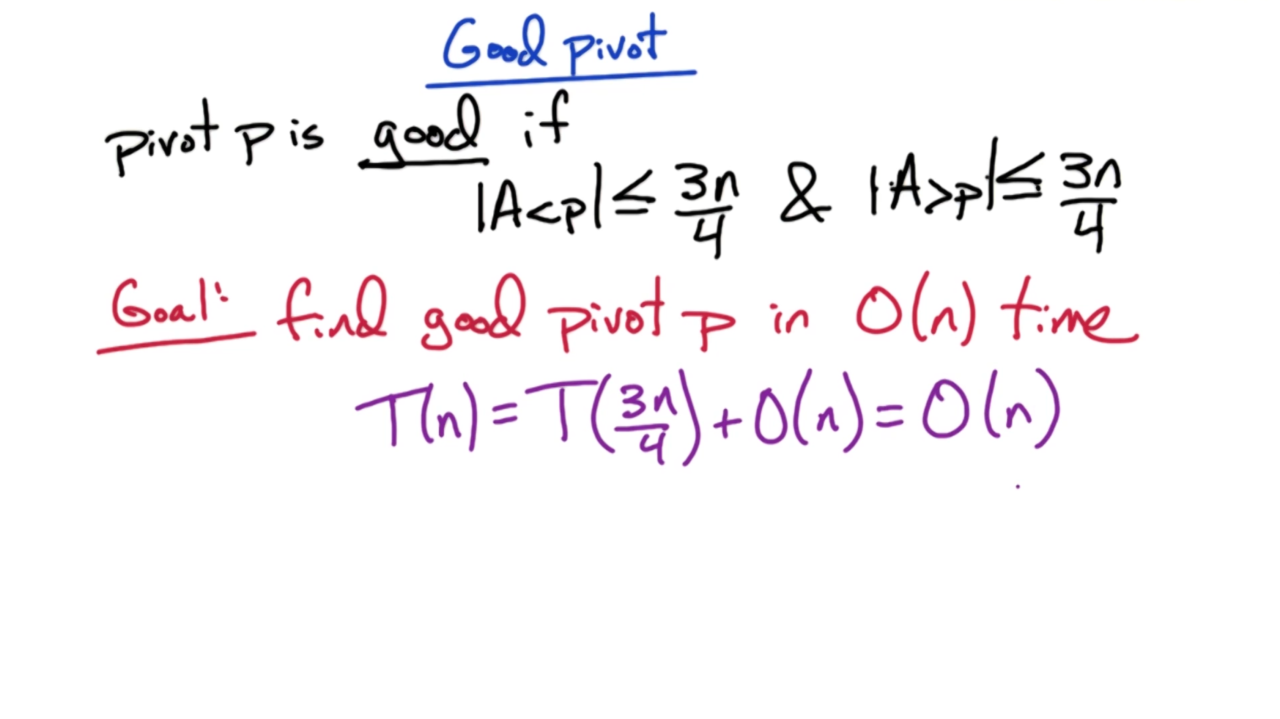 Good pivot
pivot p is good if
|A<p| ≤ 3n/4 & |A>p| ≤ 3n/4
Goal: find good pivot p in O(n) time
T(n) = T(3n/4) + O(n) = O(n)